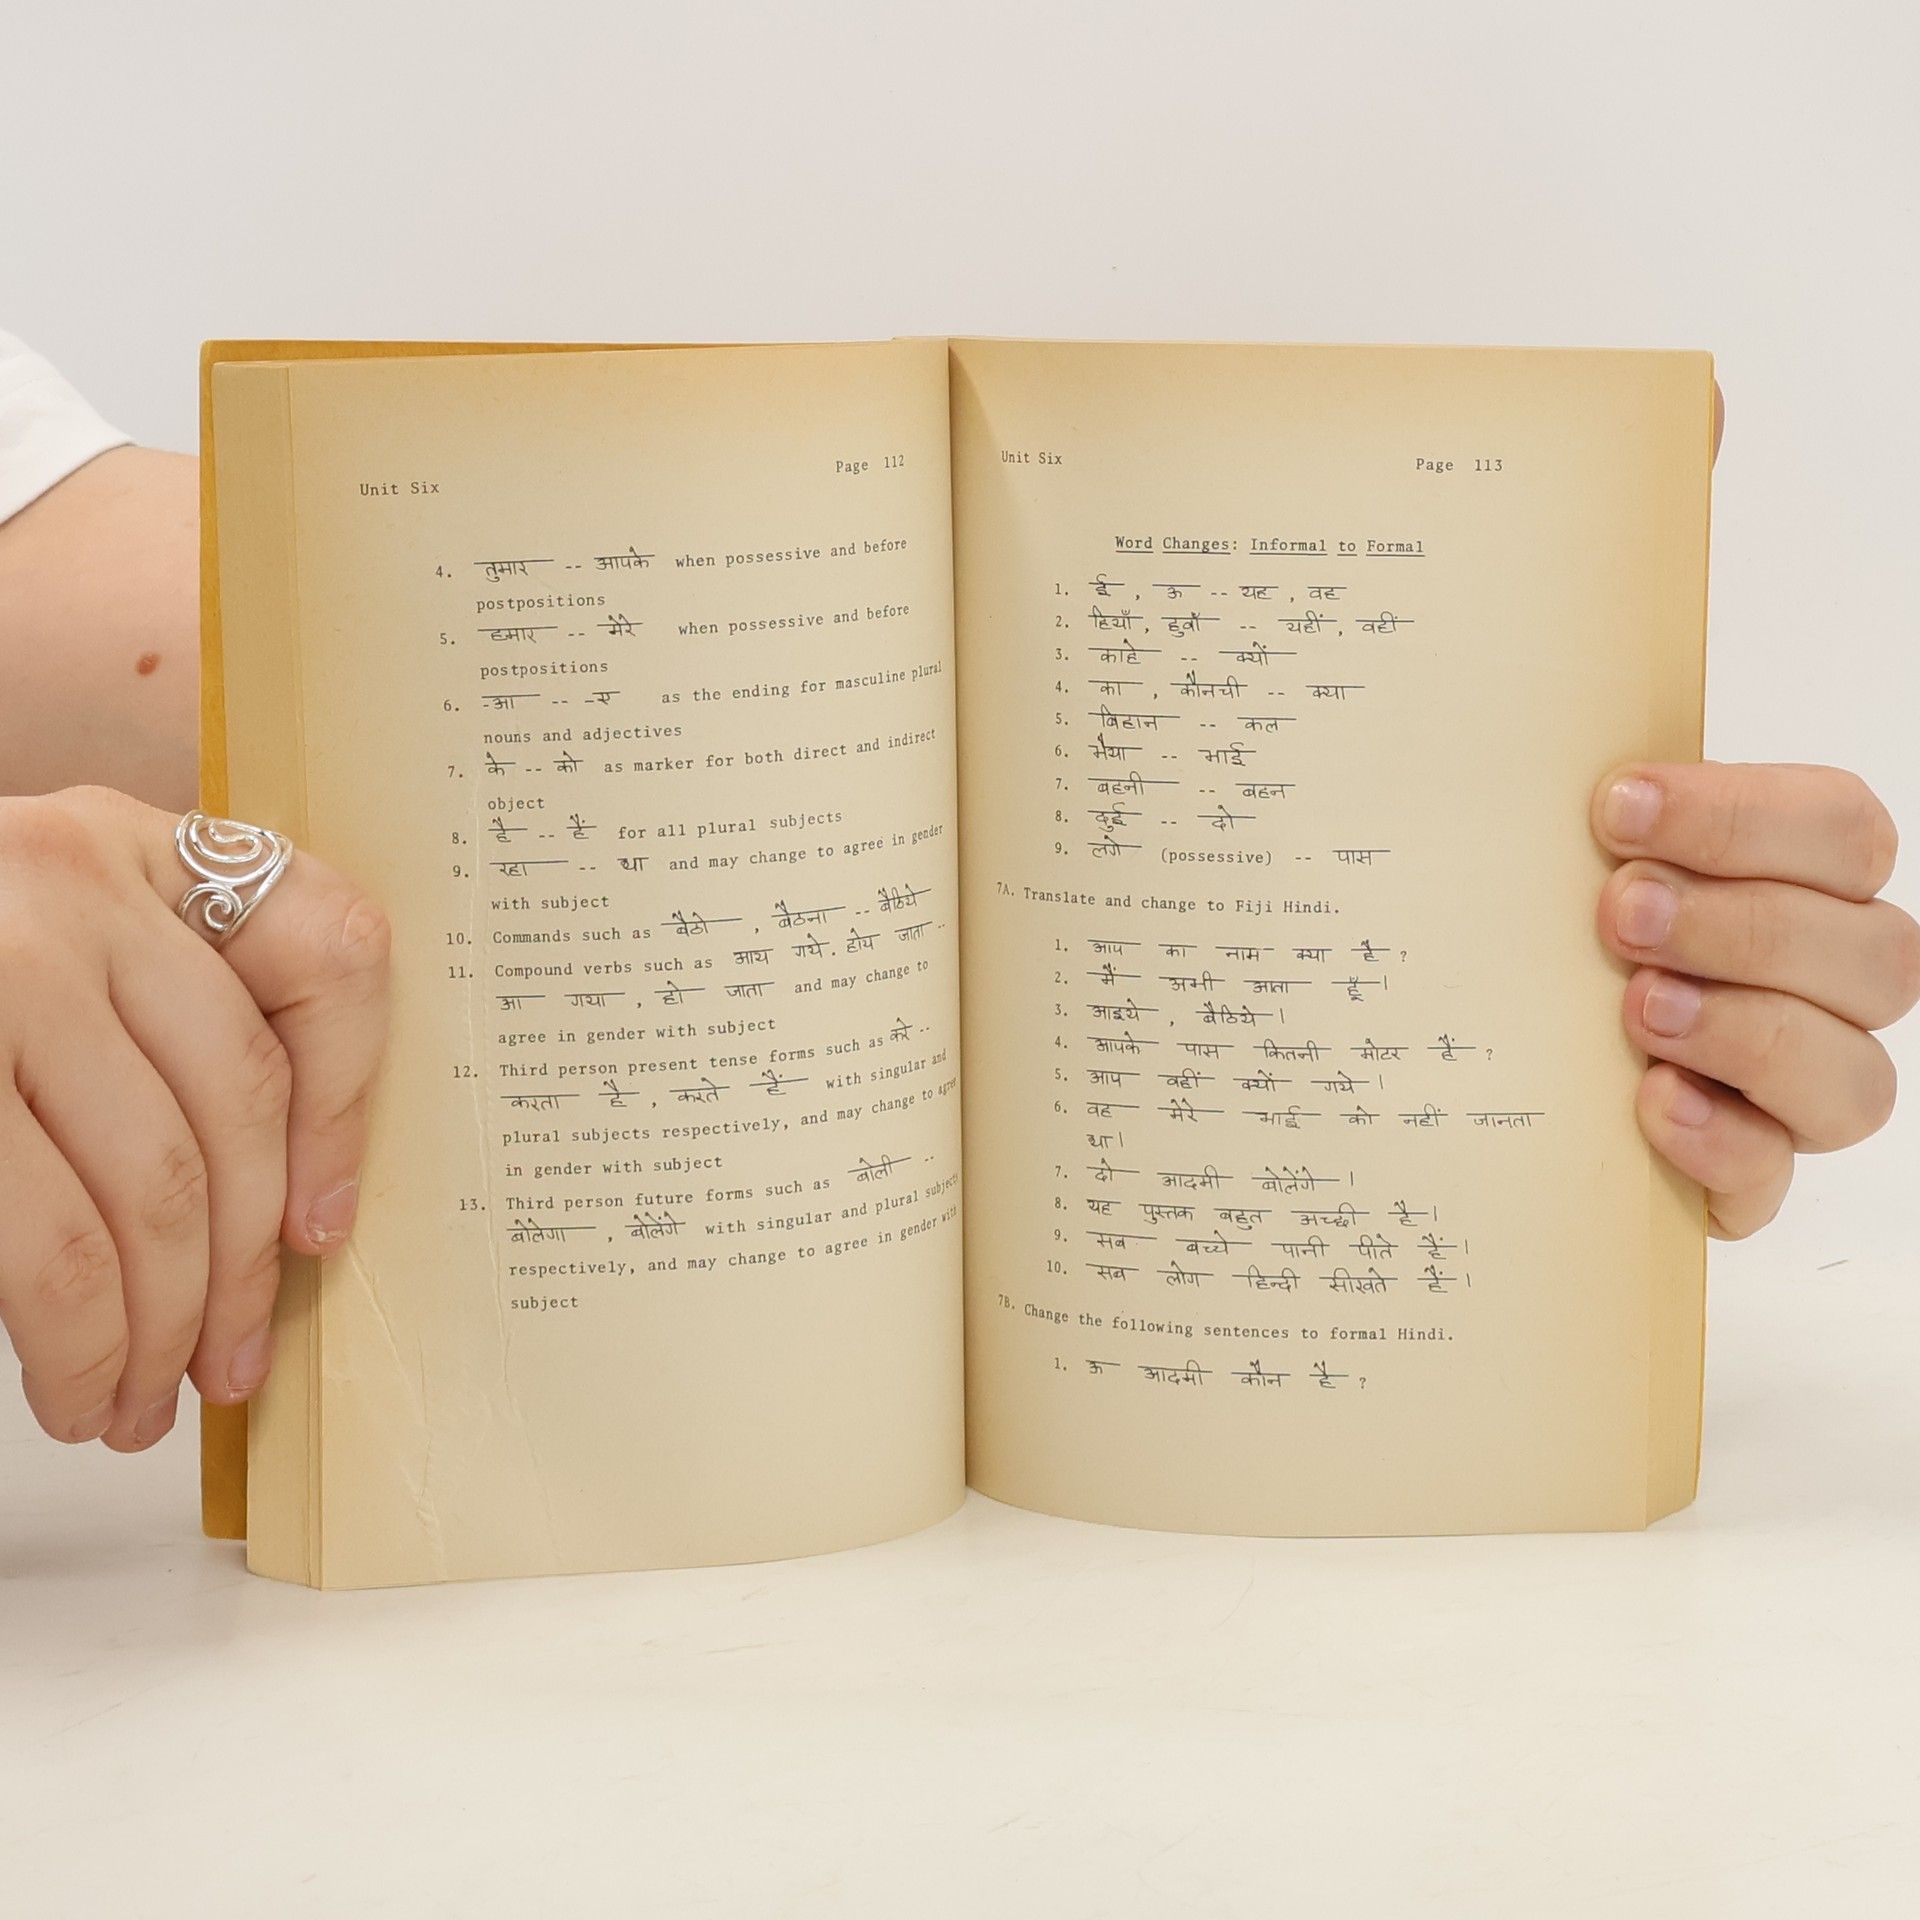 Page 112
Unit Six
4. तुमार -- आपके when possessive and before
postpositions
5. हमार -- मेरे when possessive and before
postpositions
6. -आ -- -ए as the ending for masculine plural
nouns and adjectives
7. के -- को as marker for both direct and indirect
object
8. है -- हैं for all plural subjects
9. रहा -- था and may change to agree in gender
with subject
10. Commands such as बैठो , बैठना -- बैठिये
11. Compound verbs such as आय गये. होय जाता --
आ गया , हो जाता and may change to
agree in gender with subject
12. Third person present tense forms such as करे --
करता है , करते हैं with singular and
plural subjects respectively, and may change to agree
in gender with subject
13. Third person future forms such as बोली --
बोलेगा , बोलेंगे with singular and plural subjects
respectively, and may change to agree in gender with
subject
Unit Six Page 113
Word Changes: Informal to Formal
1. ई , ऊ -- यह , वह
2. हियाँ , हुवाँ -- यहीं , वहीं
3. काहे -- क्यों
4. का , कौनची -- क्या
5. बिहान -- कल
6. भैया -- भाई
7. बहनी -- बहन
8. दुई -- दो
9. लगे (possessive) -- पास
7A. Translate and change to Fiji Hindi.
1. आप का नाम क्या है ?
2. मैं अभी आता हूँ ।
3. आइये , बैठिये ।
4. आपके पास कितनी मोटर हैं ?
5. आप वहीं क्यों गये ।
6. वह मेरे भाई को नहीं जानता
था ।
7. दो आदमी बोलेंगे ।
8. यह पुस्तक बहुत अच्छी है ।
9. सब बच्चे पानी पीते हैं ।
10. सब लोग हिन्दी सीखते हैं ।
7B. Change the following sentences to formal Hindi.
1. ऊ आदमी कौन है ?